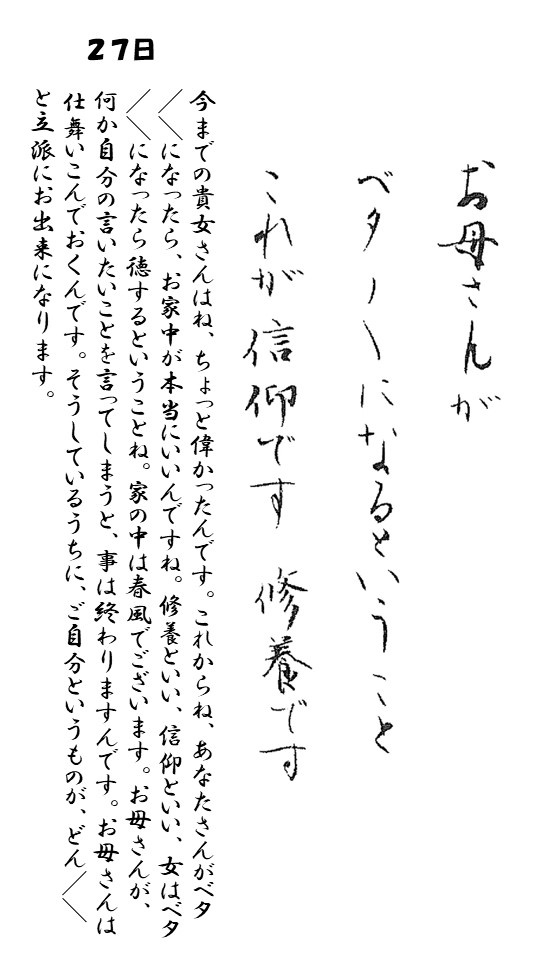 27日
お母さんが
ベタ〳〵になるということ
これが信仰です 修養です
今までの貴女さんはね、ちょっと偉かったんです。これからね、あなたさんがベタ
〳〵になったら、お家中が本当にいいんですね。修養といい、信仰といい、女はベタ
〳〵になったら徳するということね。家の中は春風でございます。お母さんが、
何か自分の言いたいことを言ってしまうと、事は終わりますんです。お母さんは
仕舞いこんでおくんです。そうしているうちに、ご自分というものが、どん〳〵
と立派にお出来になります。